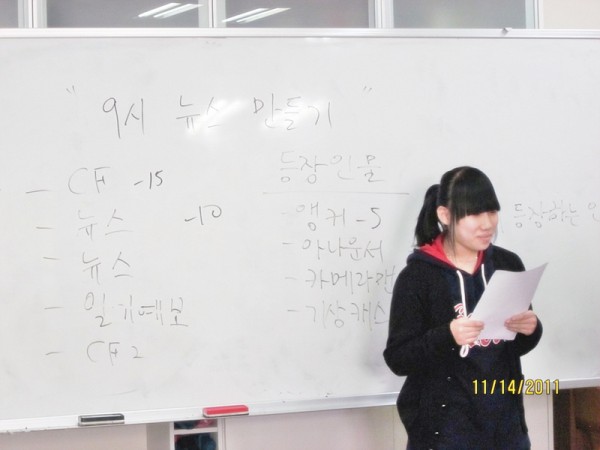 " 9시 뉴스 만들기 "
- CF -15
- 뉴스 -10
- 뉴스
- 일기예보
- CF 2
등장인물
- 앵커 -5
- 아나운서
- 카메라맨
- 기상캐스
등장하는 인
11/14/2011